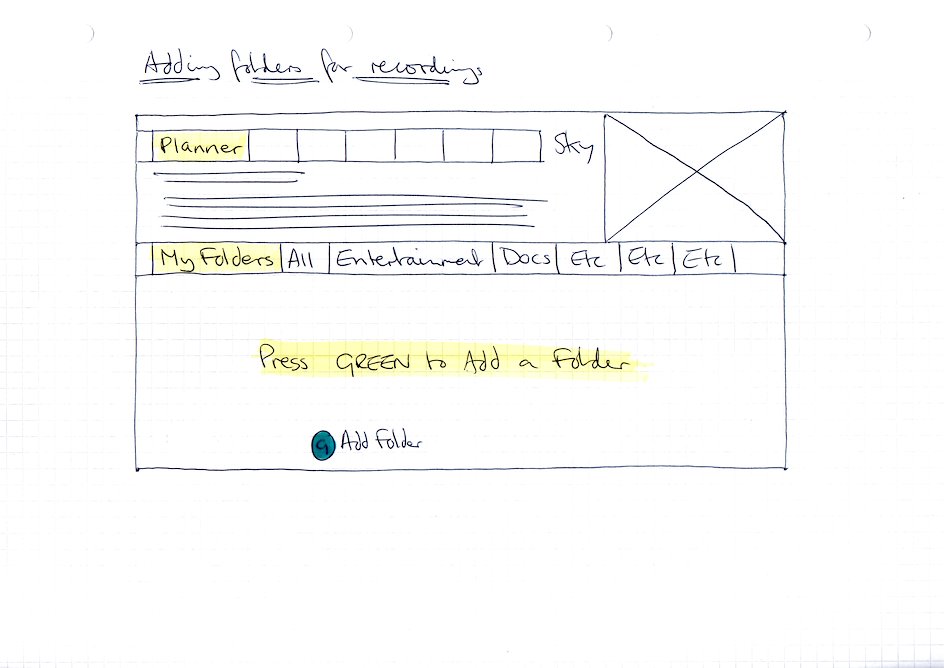 Adding folders for recordings
Planner Sky
My Folders All Entertainment Docs Etc Etc Etc
Press GREEN to Add a Folder
G Add Folder